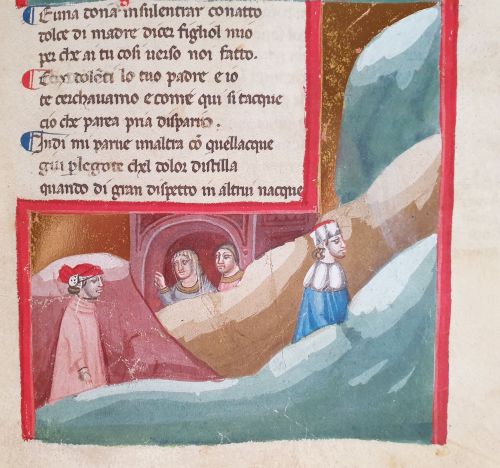 Euna dona insulentrar conatto
dolce di madre dicer figliol mio
per che ai tu cosi verso noi fatto.
dolēti lo tuo padre e io
te cerchauamo e come qui si tacque
cio che parea pria dispario.
Indi mi parue unaltra cō quellacque
giu ꝑlegote chel dolor distilla
quando di gran dispetto in altrui nacque